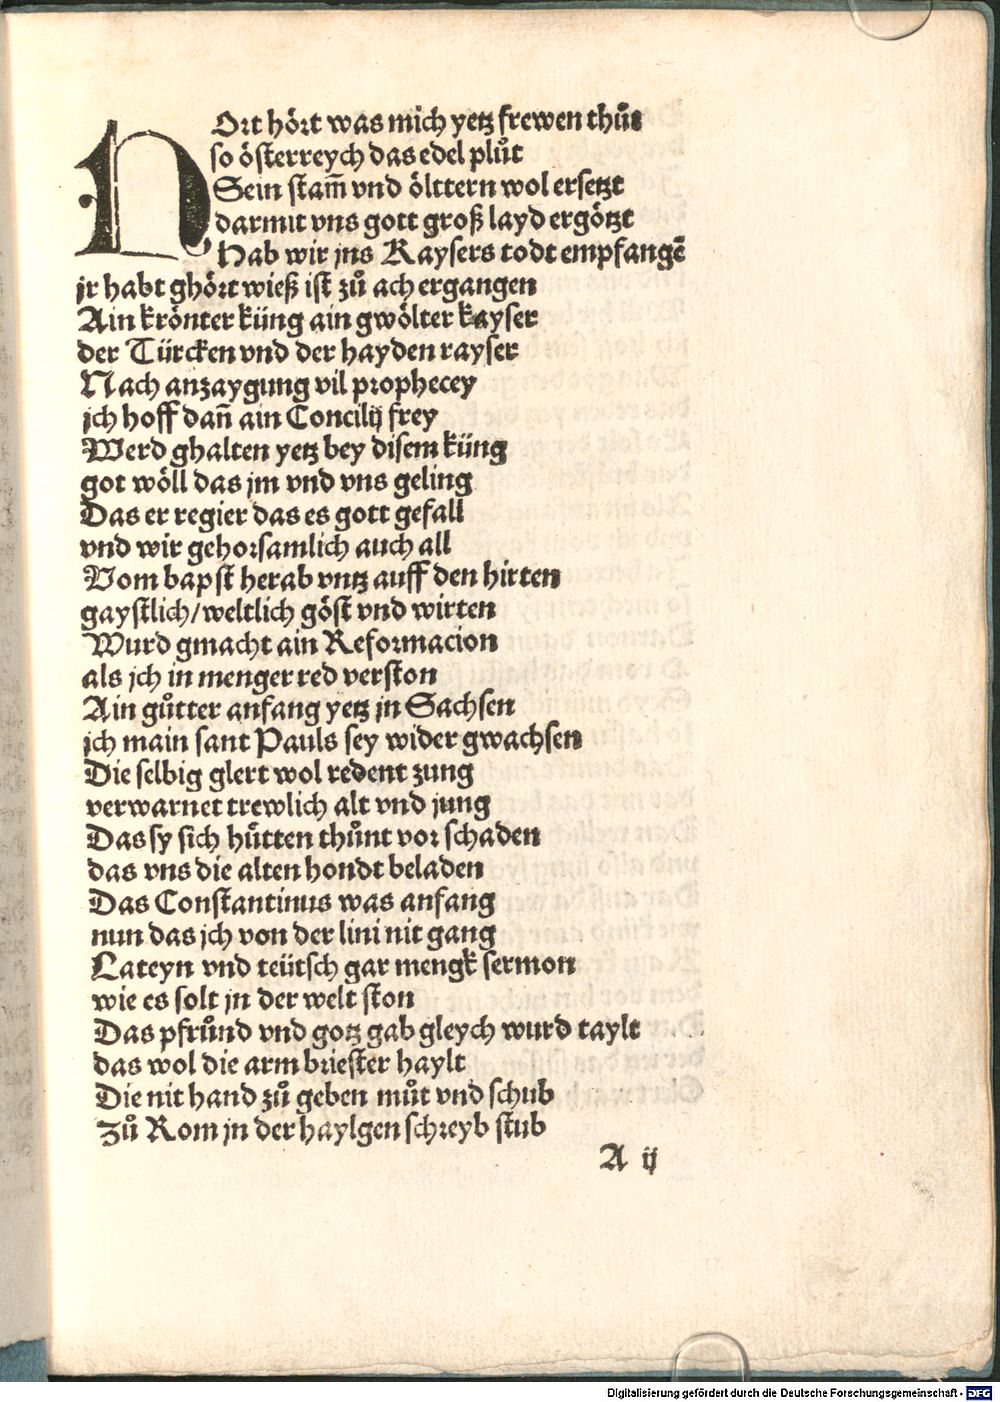 HOrt hört was mich yetz frewen thůt
so österreych das edel plůt
Sein stam̄ vnd ölttern wol ersetzt
darmit vns gott groß layd ergötzt
Hab wir jns Kaysers todt empfangē
jr habt ghört wieß ist zů ach ergangen
Ain krönter küng ain gwölter kayser
der Türcken vnd der hayden rayser
Nach anzaygung vil prophecey
jch hoff dan̄ ain Concilij frey
Werd ghalten yetz bey disem küng
got wöll das jm vnd vns geling
Das er regier das es gott gefall
vnd wir gehorsamlich auch all
Vom bapst herab vntz auff den hirten
gaystlich/weltlich göst vnd wirten
Wurd gmacht ain Reformacion
als jch in menger red verston
Ain gůtter anfang yetz jn Sachsen
jch main sant Pauls sey wider gwachsen
Die selbig glert wol redent zung
verwarnet trewlich alt vnd jung
Das sy sich hůtten thůnt vor schaden
das vns die alten hondt beladen
Das Constantinus was anfang
nun das jch von der lini nit gang
Lateyn vnd teütsch gar mengk sermon
wie es solt jn der welt ston
Das pfrůnd vnd gotz gab gleych wurd taylt
das wol die arm briester haylt
Die nit hand zů geben můt vnd schub
Zů Rom jn der haylgen schreyb stub
A ij
Digitalisierung gefördert durch die Deutsche Forschungsgemeinschaft - DFG